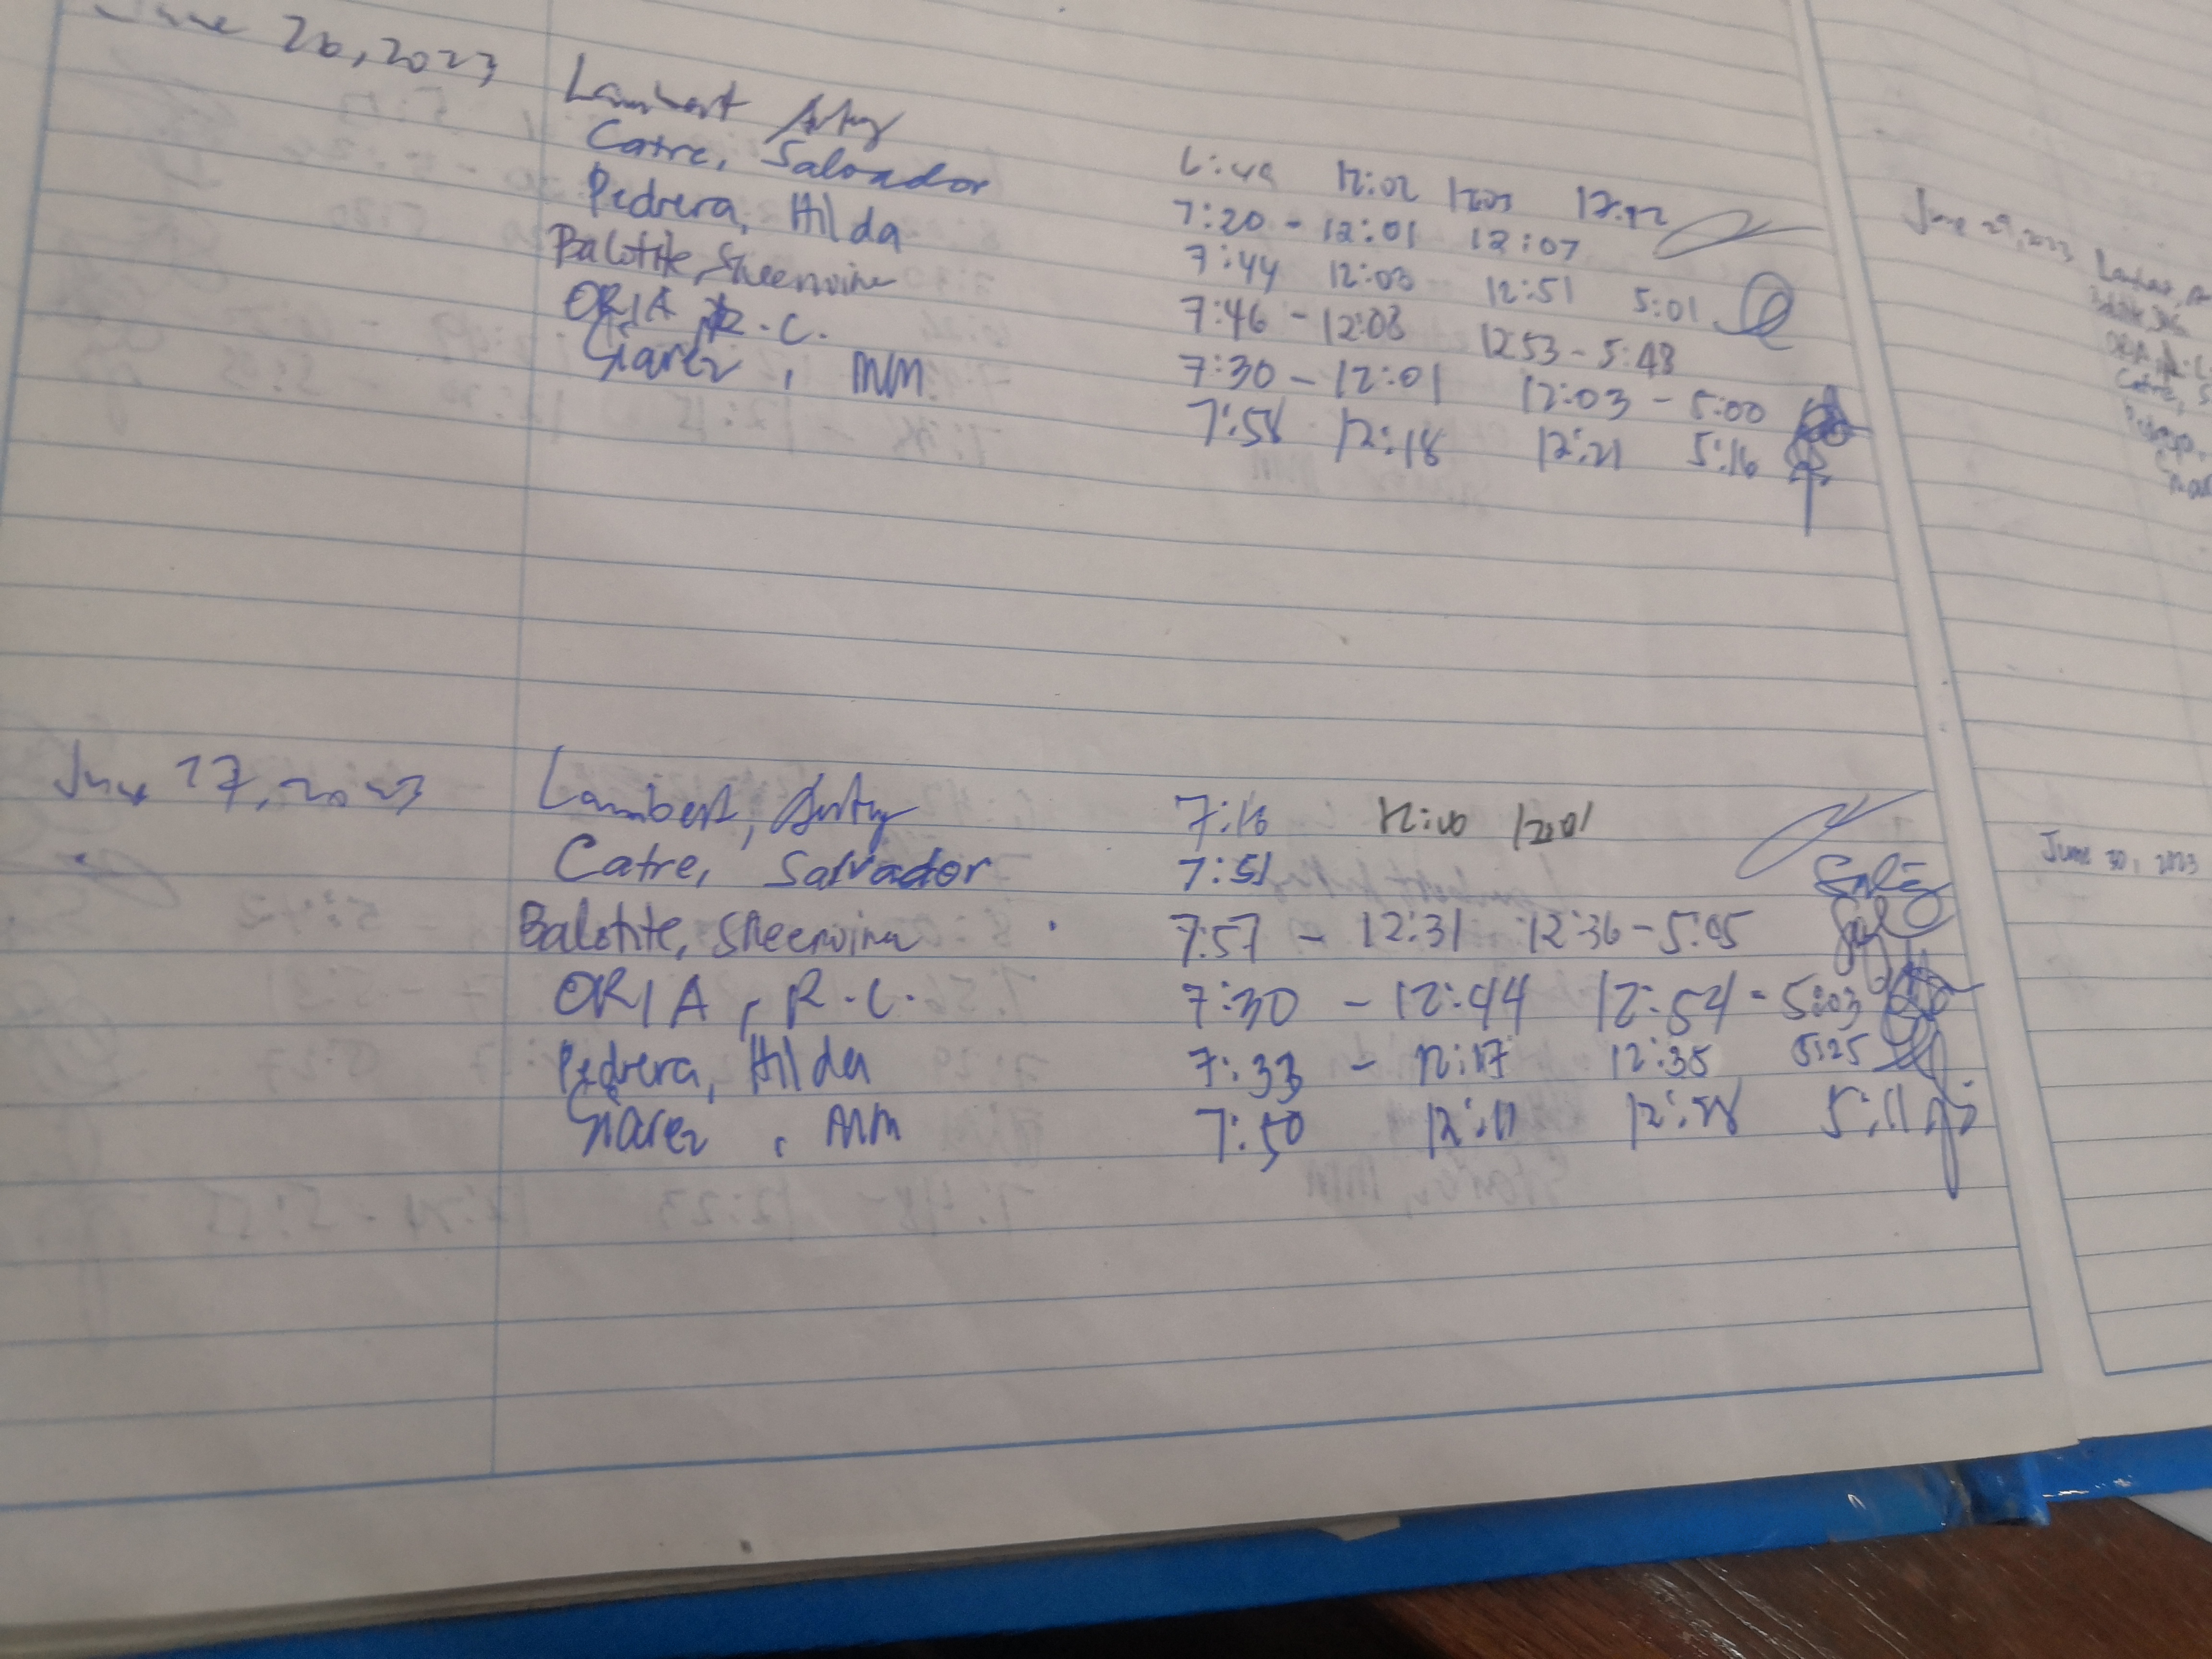 June 26, 2023
Lambert 6:49 12:02 12:03 17:42
Catre, Salvador 7:20 - 12:01 12:07
Pedrera, Hilda 7:44 12:03 12:51 5:01
Balotite, Sheenvine 7:46 - 12:03 1253 - 5:43
ORIA R.C. 7:30 - 12:01 12:03 - 5:00
Siarez, MM 7:58 12:18 12:21 5:16
June 27, 2023
Lambert, 7:16 12:00 12:01
Catre, Salvador 7:51
Balotite, Sheenvine 7:57 - 12:31 12:36 - 5:05
ORIA, R.C. 7:30 - 12:44 12:54 - 5:03
Pedrera, Hilda 7:33 - 12:17 12:35 5:25
Siarez, MM 7:50 12:11 12:28 5:11
June 29, 2023
ORIA, R.C.
Catre, S
June 30, 2023